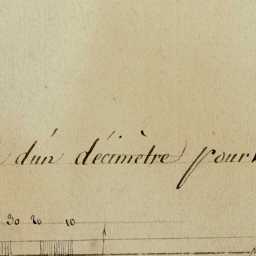 d'un décimètre pour
30 20 10